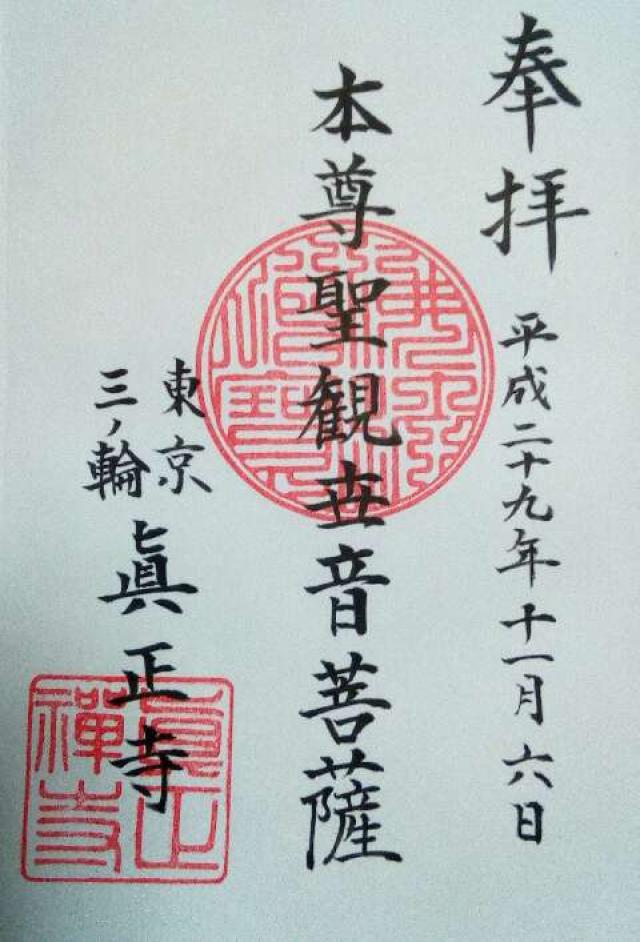 奉拝
平成二十九年十一月六日
本尊聖観世音菩薩
東京
三ノ輪
眞正寺
眞正
禅寺